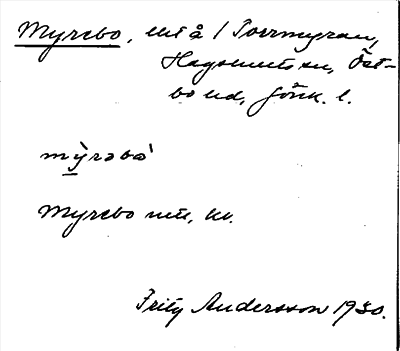 Myrebo, utå / Torrmyran,
Hagshultsn, Öst-
bo hd, Jönk. l.
mỳ̱rəbo'
Myrebo
Fritz Andersson 1930.